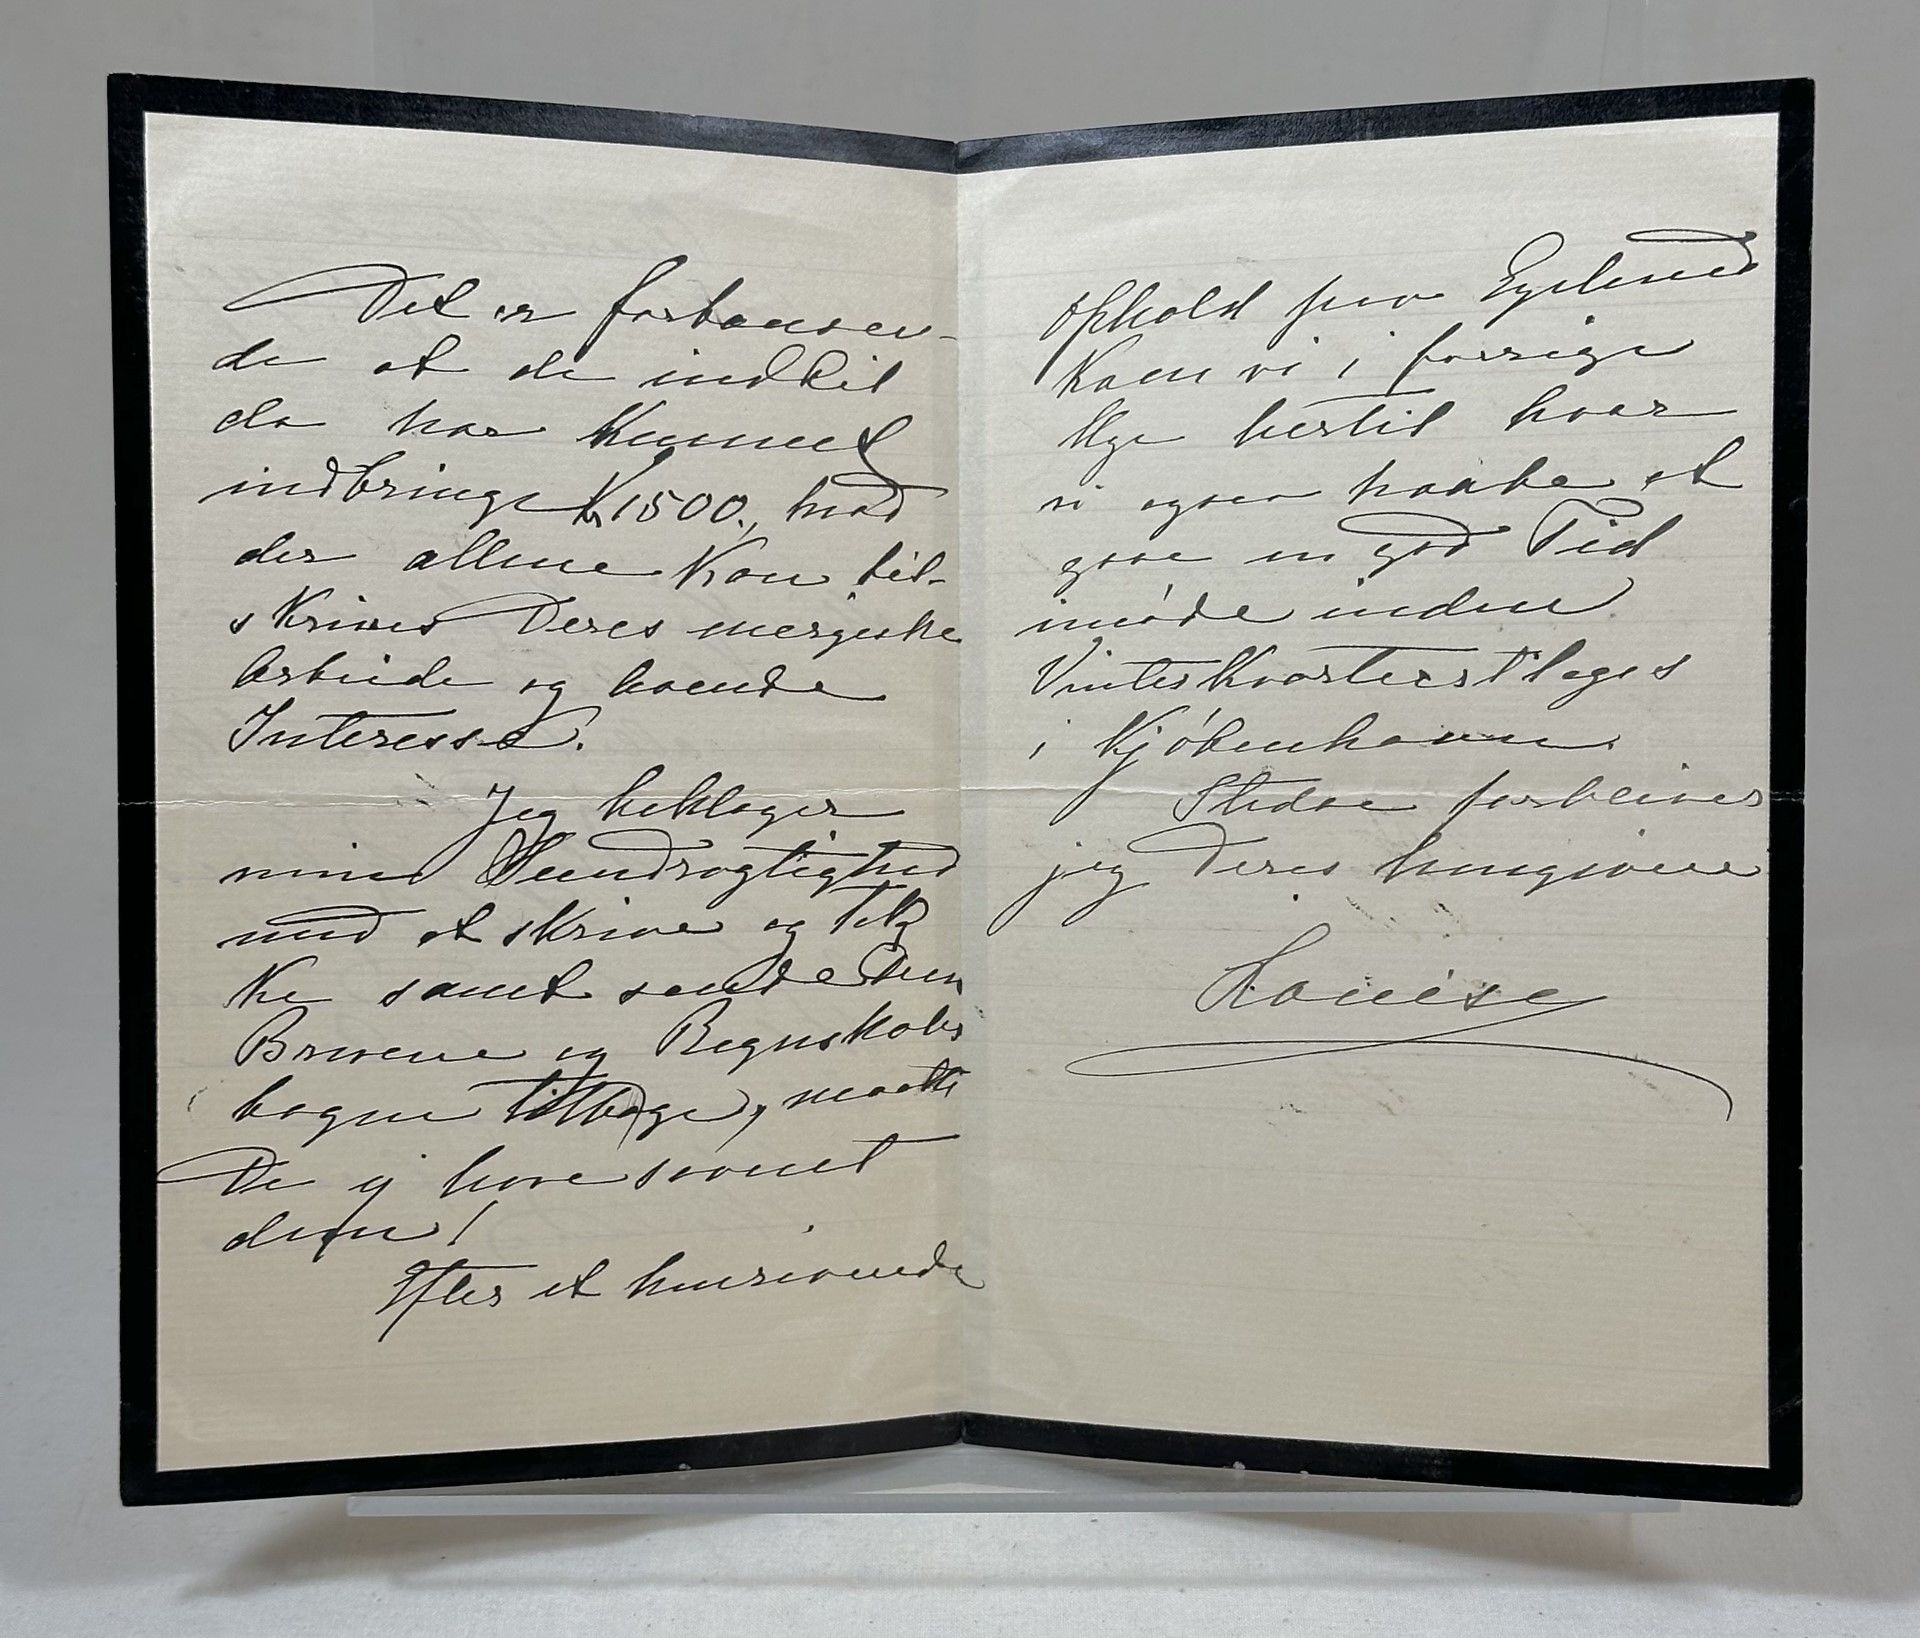 Det er forbausen-
de at de indtil
da har kunnet
indbringe Kr 1500., hvad
der allene kan til-
skrives Deres energiske
Arbeide og levende
Interesse.
Jeg beklager
min Seendrægtighed
med at skrive og tak-
ke samt sende Dem
Brevene og Regnskabs
bogen tilbage, maatte
De ej have savnet
dem!
Efter et henrivende
Ophold paa Egelund
kom vi i forrige
Uge hertil hvor
vi ogsaa haabe at
gaae en god Tid
imøde inden
Vinterkvarteret tages
i Kjøbenhavn.
Stedse forbliver
jeg Deres hengivne
Louise